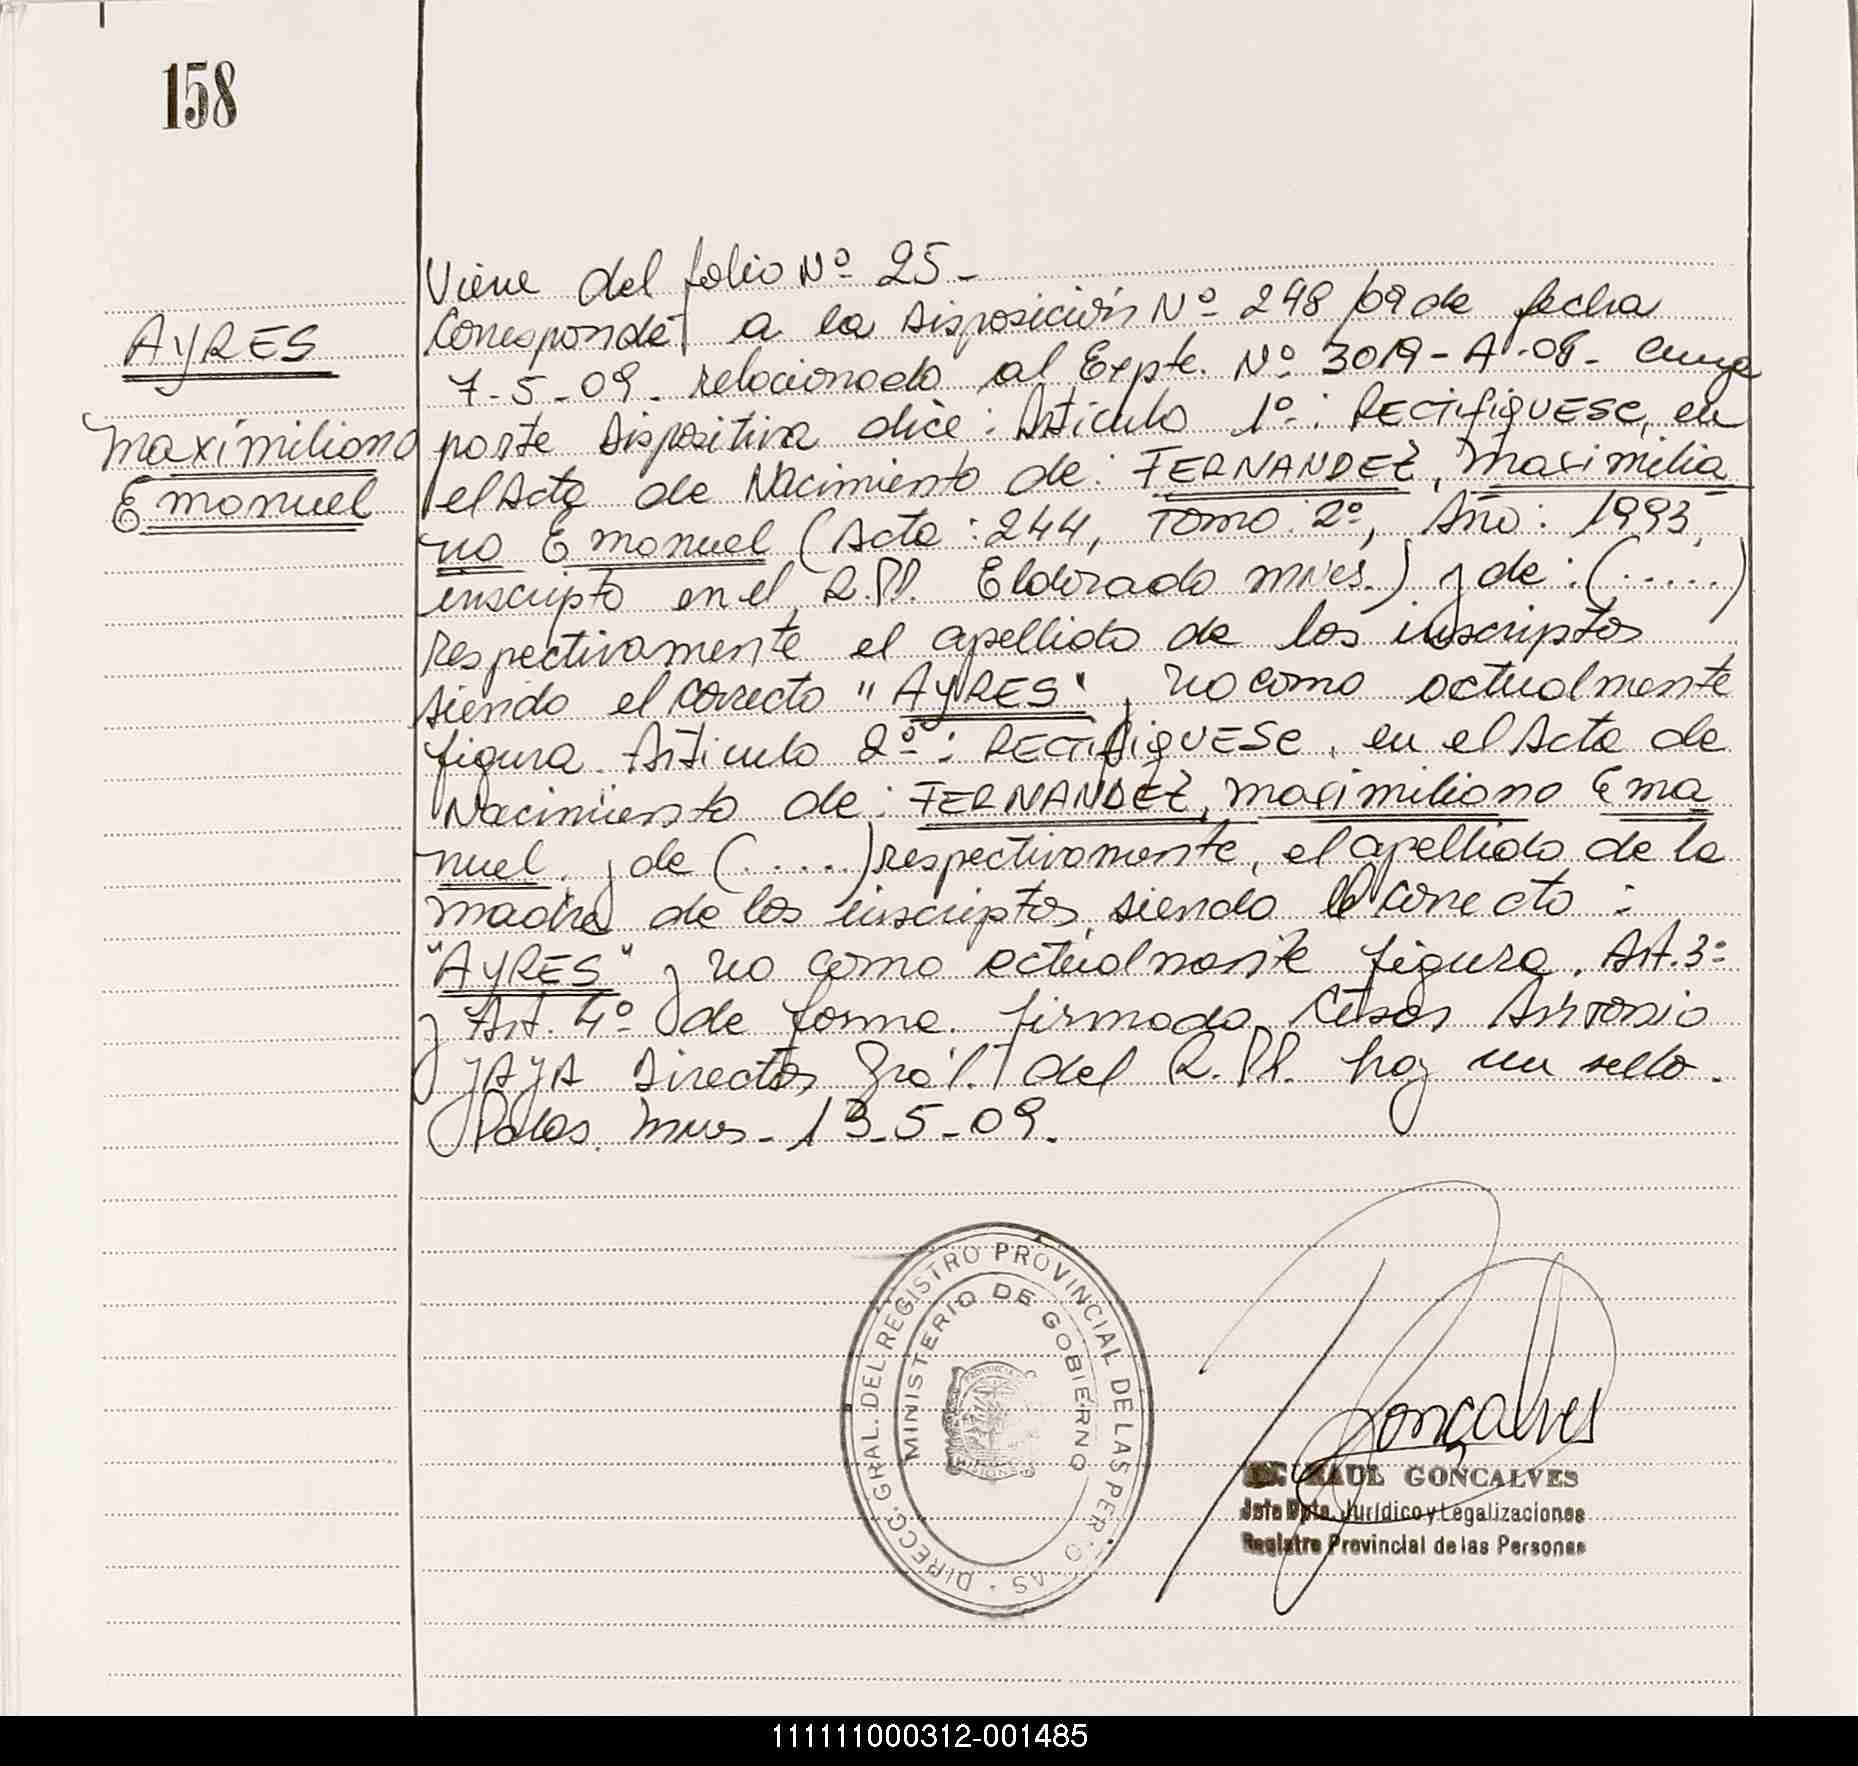 158
AYRES
Maximiliano
Emanuel
Viene del folio Nº 25-
Corresponde a la Disposición Nº 248/09 de fecha
7-5-09- relacionado al Expte. Nº 3019-A-08- cuya
parte dispositiva dice: Articulo 1º: RECTIFIQUESE, en
el Acta de Nacimiento de: FERNANDEZ, Maximilia
no Emanuel (Acta: 244, Tomo: 2º, Año: 1993,
inscripto en el R.PP. Eldorado Mnes.) y de: (.....)
respectivamente el apellido de los inscriptos
siendo el correcto "AYRES", no como actualmente
figura. Articulo 2º: RECTIFIQUESE, en el Acta de
Nacimiento de: FERNANDEZ, Maximiliano Ema
nuel, y de (.....) respectivamente, el apellido de la
madre de los inscriptos, siendo lo correcto:
"AYRES" y no como actualmente figura. Art. 3º
y Art. 4º de forma. firmado Cesar Antonio
YAYA Director Gral. del R.PP. hay un sello.
Pdas. Mnes- 13-5-09.
DIRECC. GRAL. DEL REGISTRO PROVINCIAL DE LAS PERSONAS
MINISTERIO DE GOBIERNO
PROVINCIA
MISIONES
Goncalves
RAUL GONCALVES
Jefe Dpto. Jurídico y Legalizaciones
Registro Provincial de las Personas
111111000312-001485